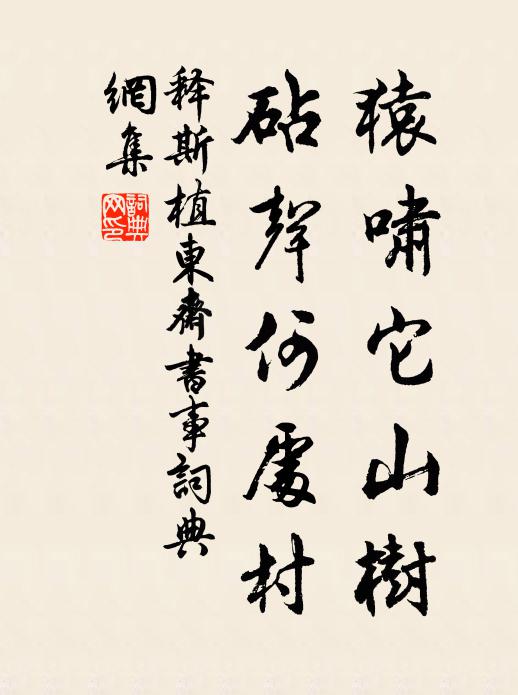 猿嘯它山樹
砧聲何處村
释斯植東齋書事詞典
網集
詞典
网印